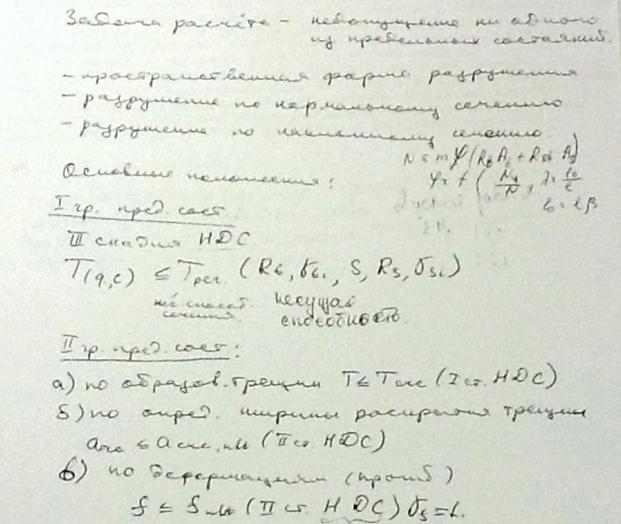 Задача расчёта – невопущение ни одного
из предельных состояний.
– пространственная форма разрушения
– разрушение по нормальному сечению
– разрушение по наклонному сечению.
N ≤ mφ(RbAb + Rsc As)
φ = f(N1/N, λ = l0/i
l0 = lβ
Основные положения:
I гр. пред. сост.
III стадия НДС
T(q,c) ≤ Tрег. (Rb, σbi, S, Rs, σsi)
нес. способ. несущая
сечения. способность.
II гр. пред. сост:
а) по образов. трещин T ≤ Tcrc (I ст. НДС)
б) по опред. ширины раскрытия трещин
acrc ≤ acrc,ult (II ст НДС)
в) по деформациям (прогиб)
f ≤ fult (II ст. НДС)